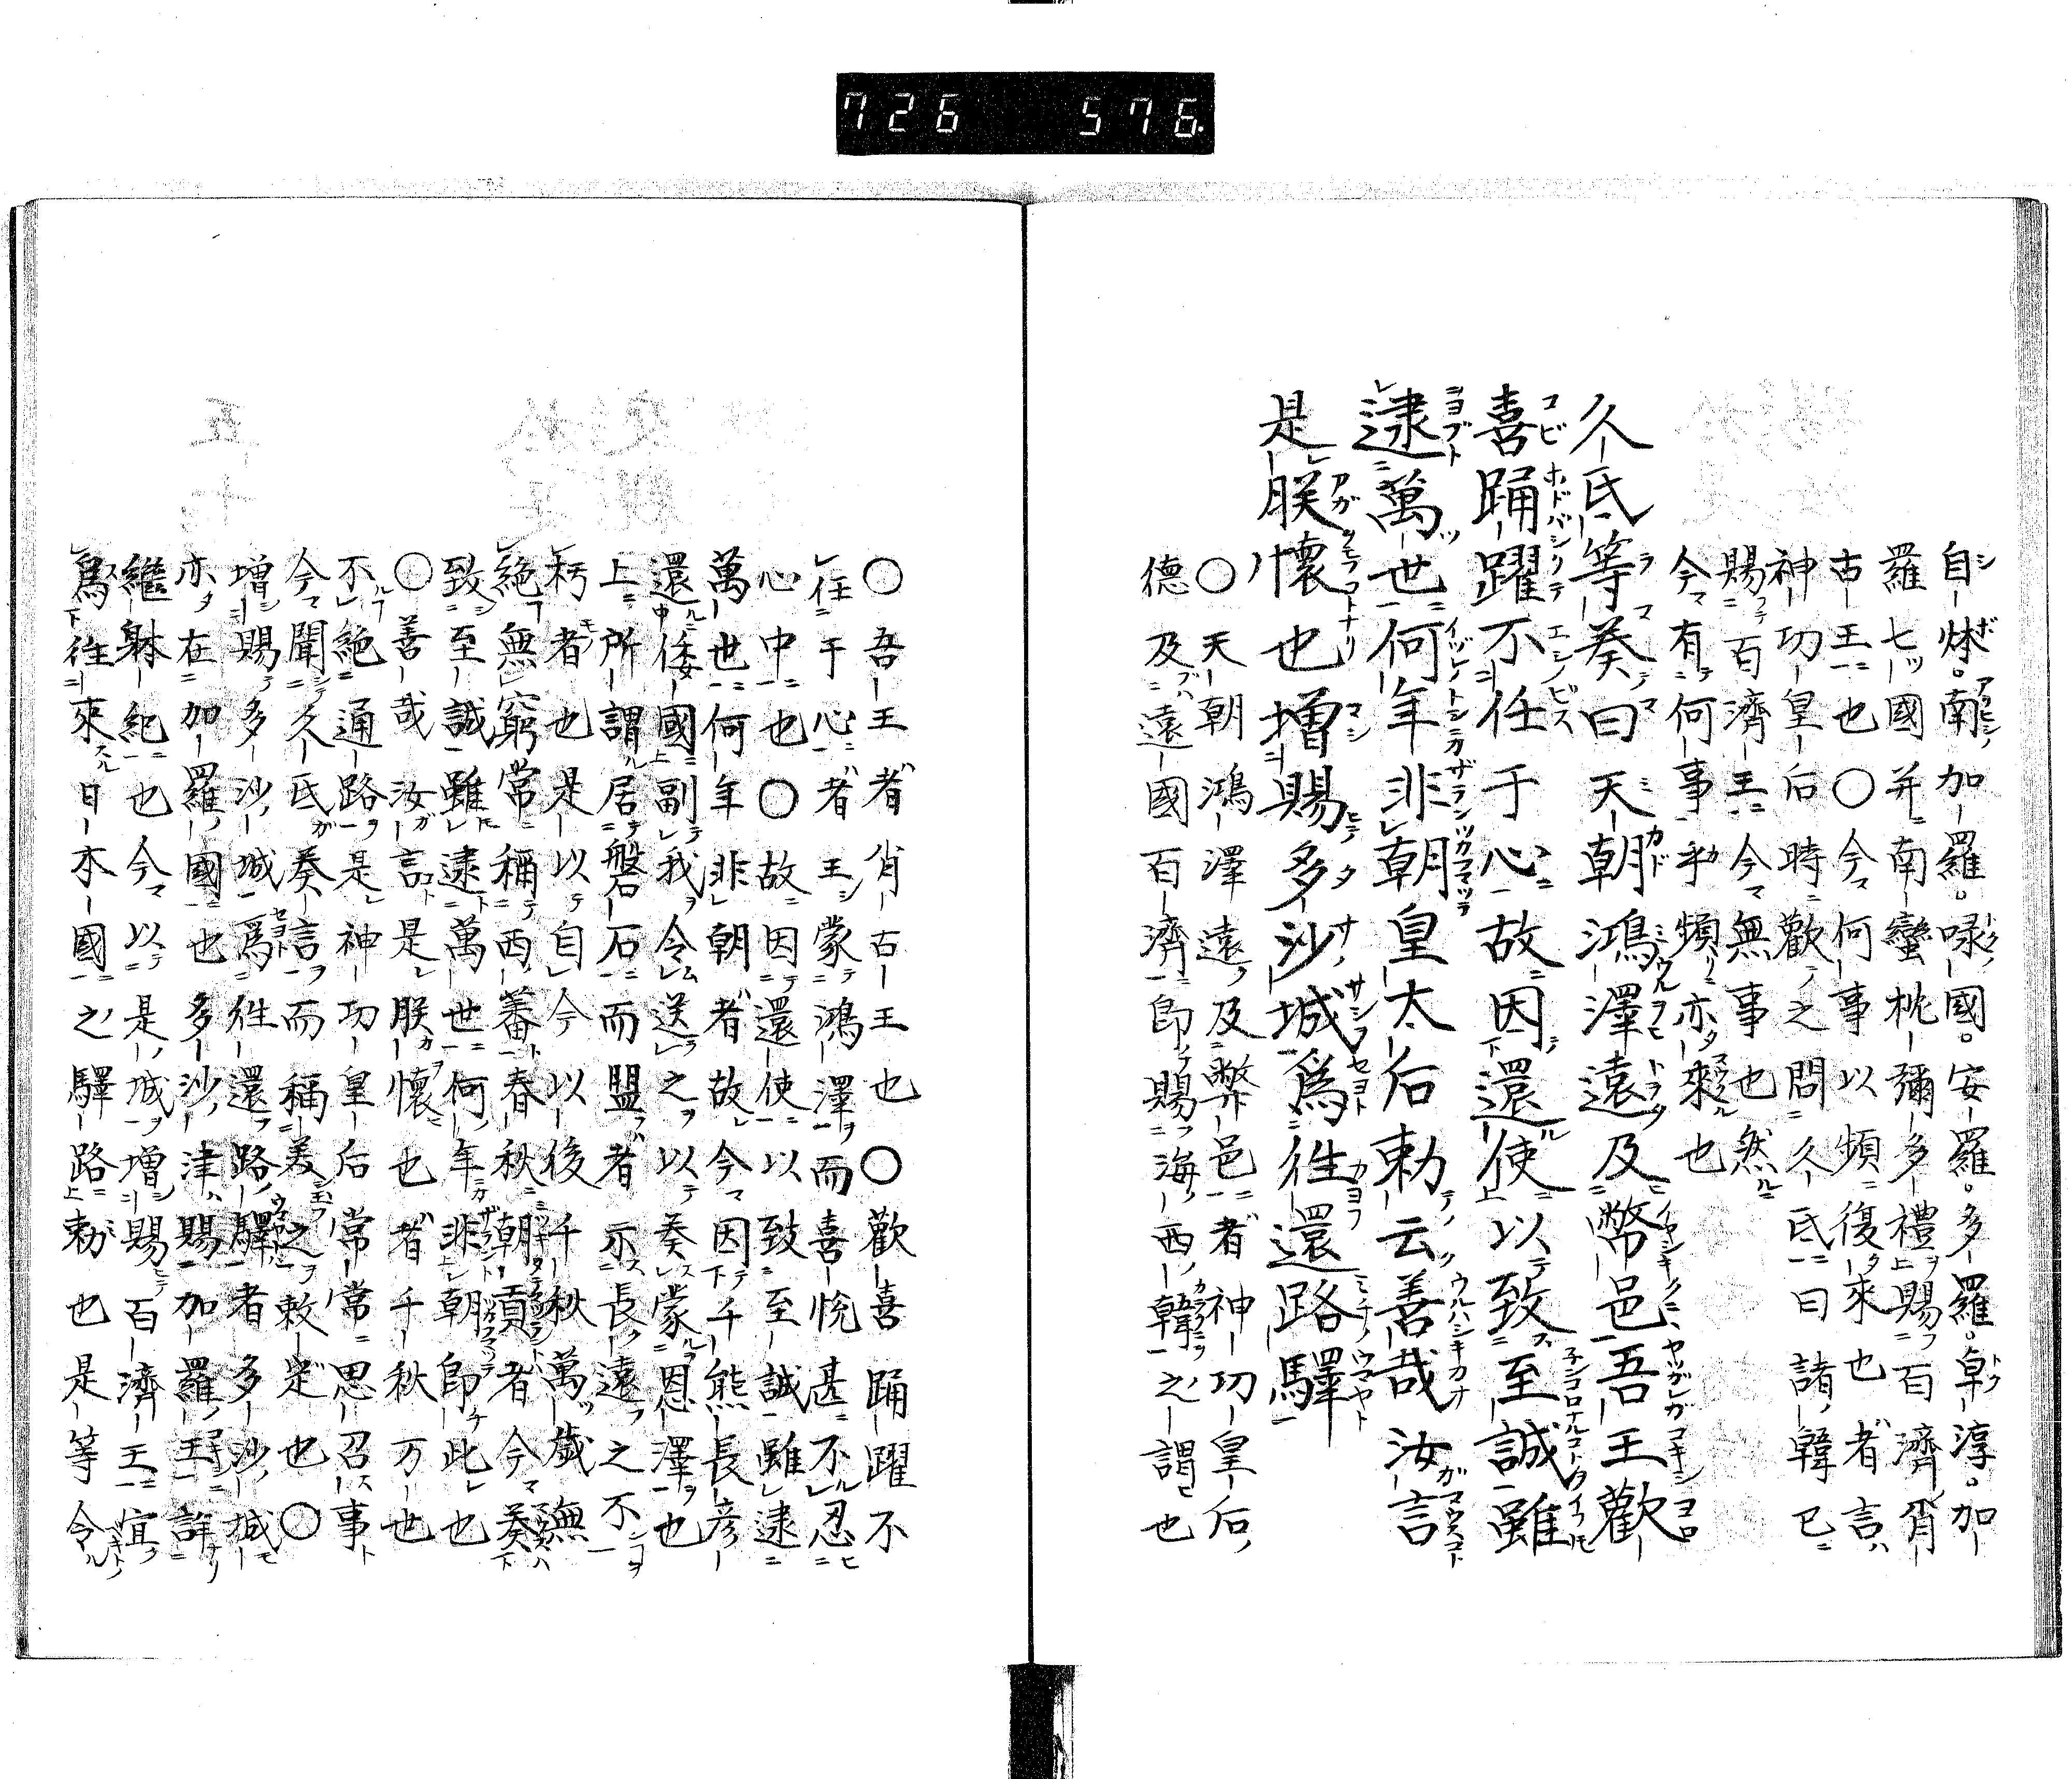 726 576
自㶱。南加羅。㖨國。安羅。多羅。卓淳。加
羅七國并南蠻枕彌多禮賜百濟肖
古王也〇今何事以頻復來也者言
神功皇后時歡之問久氐曰諸韓已
賜百濟王今無事也然
今有何事乎頻亦來也
久氐等奏曰天朝鴻澤遠及幣邑吾王歡
喜踊躍不任于心故因還使以致至誠雖
逮萬世何年非朝皇太后勅云善哉汝言
是朕懷也增賜多沙城爲往還路驛
〇天朝鴻澤遠及幣邑者神功皇后
德及遠國百濟即賜海西韓之謂也
〇吾王者肖古王也〇歡喜踊躍不
任于心者王蒙鴻澤而喜悅甚不忍
心中也〇故因還使以致至誠雖逮
萬世何年非朝者故今因千熊長彥
還倭國副我令送之以奏蒙恩澤也
上所謂居磐石而盟者示長遠之不
朽者也是以自今以後千秋萬歲無
絶無窮常稱西蕃春秋朝貢者今奏
致至誠雖逮萬世何年非朝即此也
〇善哉汝言是朕懷也者千秋万世
不絶通路是神功皇后常常思召事
今聞久氐奏言而稱美之敕是也〇
增賜多沙城爲往還路驛者多沙城
亦在加羅國也多沙津賜加羅王詳
繼躰紀也今以是城增賜百濟王宜
爲往來日本國之驛路勅也是等令